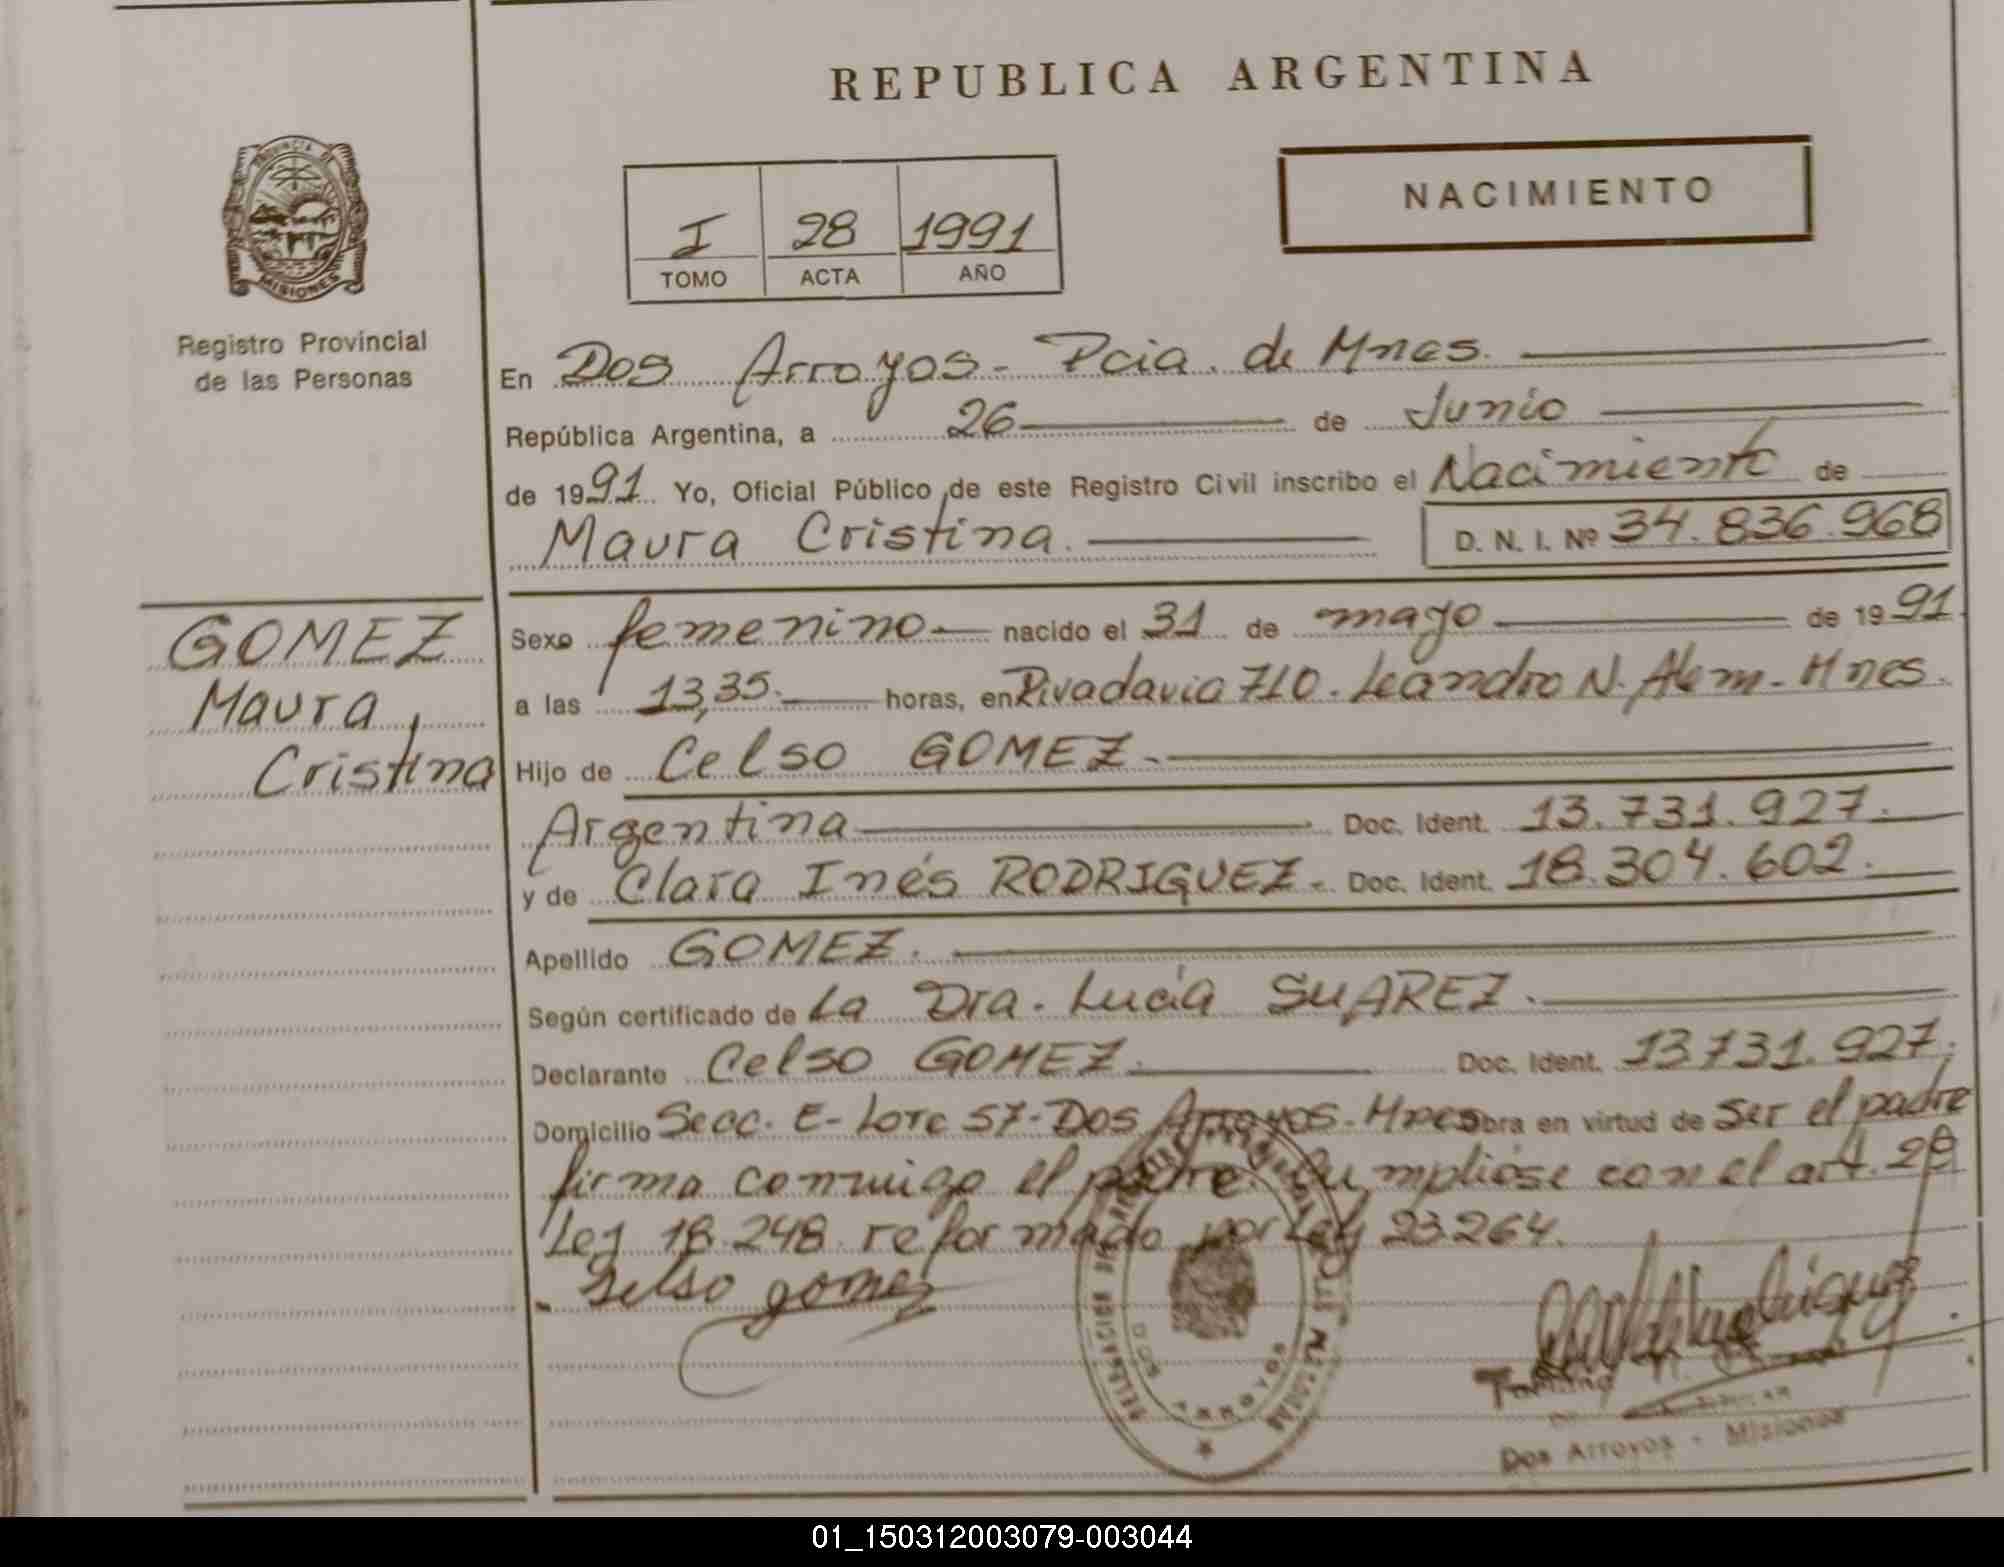 REPUBLICA ARGENTINA
PROVINCIA DE
MISIONES
Registro Provincial
de las Personas
I 28 1991
TOMO ACTA AÑO
NACIMIENTO
En Dos Arroyos - Pcia. de Mnes.
República Argentina, a 26 de Junio
de 1991 Yo, Oficial Público de este Registro Civil inscribo el Nacimiento de
Maura Cristina. D. N. I. Nº 34.836.968
GOMEZ
Maura
Cristina
Sexo femenino nacido el 31 de mayo de 1991
a las 13,35. horas, en Rivadavia 710. Leandro N. Alem - Mnes.
Hijo de Celso GOMEZ.
Argentina Doc. Ident. 13.731.927.
y de Clara Inés RODRIGUEZ - Doc. Ident. 18.304.602.
Apellido GOMEZ.
Según certificado de La Dra. Lucía SUAREZ.
Declarante Celso GOMEZ. Doc. Ident. 13.731.927.
Domicilio Secc. E - Lote 57 - Dos Arroyos - Mnes obra en virtud de ser el padre
firma conmigo el padre. Cumplióse con el art. 2º
Ley 18.248 reformado por Ley 23.264.
Celso gomez
DOS ARROYOS
Dos Arroyos - Misiones
01_150312003079-003044